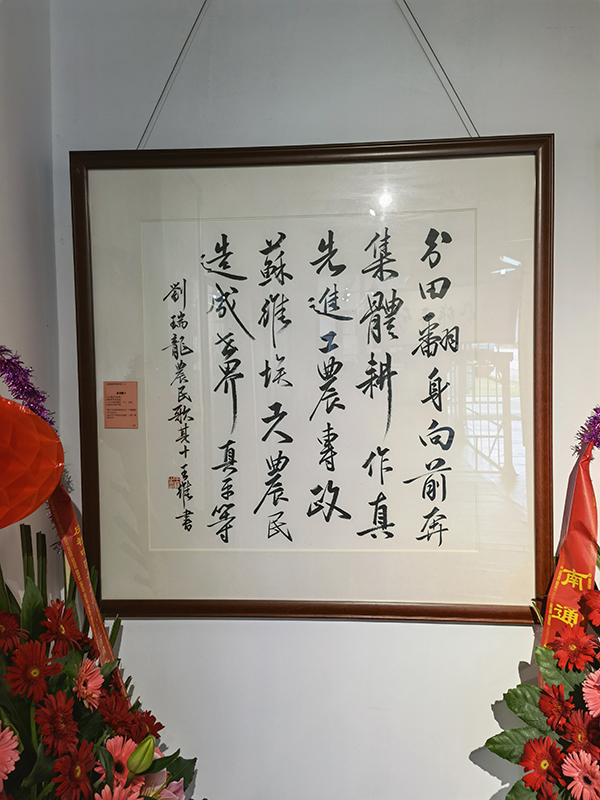 分田翻身向前奔
集體耕作真
先進工農專政
蘇維埃農民
造成世界真平等
劉瑞龍農民歌其十 王書
南通